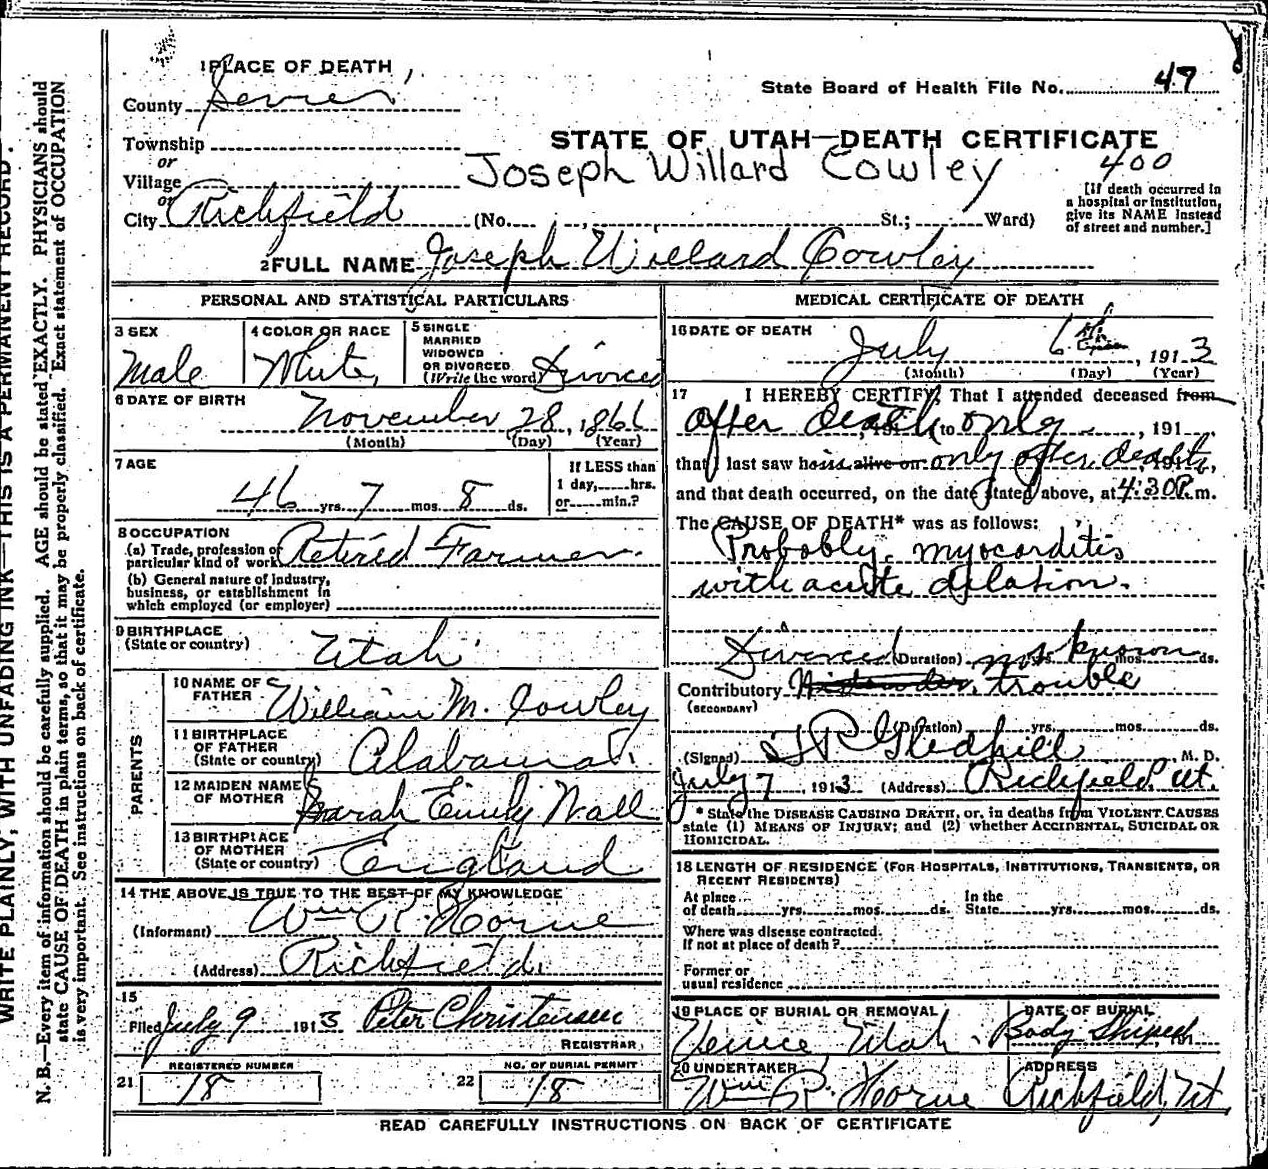 1 PLACE OF DEATH
County Sevier
State Board of Health File No. 47
Township
or
STATE OF UTAH—DEATH CERTIFICATE
Village
or
Joseph Willard Cowley
400
City Richfield (No. St.; Ward)
[If death occurred in
a hospital or institution,
give its NAME instead
of street and number.]
2 FULL NAME Joseph Willard Cowley
PERSONAL AND STATISTICAL PARTICULARS
3 SEX
Male
4 COLOR OR RACE
White
5 SINGLE
MARRIED
WIDOWED
OR DIVORCED
(Write the word) Divorced
6 DATE OF BIRTH
November 28, 1866
(Month) (Day) (Year)
7 AGE
46 yrs. 7 mos. 8 ds.
If LESS than
1 day, hrs.
or min.?
8 OCCUPATION
(a) Trade, profession or
particular kind of work Retired Farmer.
(b) General nature of industry,
business, or establishment in
which employed (or employer)
9 BIRTHPLACE
(State or country) Utah
PARENTS
10 NAME OF
FATHER William M. Cowley
11 BIRTHPLACE
OF FATHER
(State or country) Alabama
12 MAIDEN NAME
OF MOTHER Sarah Emily Wall
13 BIRTHPLACE
OF MOTHER
(State or country) England
14 THE ABOVE IS TRUE TO THE BEST OF MY KNOWLEDGE
(Informant) Wm R. Horne
(Address) Richfield.
15
Filed July 9 1913 Peter Christensen
REGISTRAR
21 REGISTERED NUMBER
18
22 NO. OF BURIAL PERMIT
18
MEDICAL CERTIFICATE OF DEATH
16 DATE OF DEATH
July 6th, 1913
(Month) (Day) (Year)
17 I HEREBY CERTIFY, That I attended deceased from
after death, 191 to only, 191
that I last saw his alive on only after death, 191,
and that death occurred, on the date stated above, at 4:30 P.m.
The CAUSE OF DEATH* was as follows:
Probably myocarditis
with acute dilation.
Divorced (Duration) not yrs. known mos. ds.
Contributory trouble
(SECONDARY)
(Duration) yrs. mos. ds.
(Signed) Gledhill M. D.
July 7, 1913 (Address) Richfield Ut.
* State the DISEASE CAUSING DEATH, or, in deaths from VIOLENT CAUSES
state (1) MEANS OF INJURY; and (2) whether ACCIDENTAL, SUICIDAL OR
HOMICIDAL.
18 LENGTH OF RESIDENCE (FOR HOSPITALS, INSTITUTIONS, TRANSIENTS, OR
RECENT RESIDENTS)
At place
of death yrs. mos. ds.
In the
State yrs. mos. ds.
Where was disease contracted
if not at place of death?
Former or
usual residence
19 PLACE OF BURIAL OR REMOVAL
Venice, Utah.
DATE OF BURIAL
Body Shiped 191
20 UNDERTAKER
Wm R. Horne
ADDRESS
Richfield, Ut
READ CAREFULLY INSTRUCTIONS ON BACK OF CERTIFICATE
WRITE PLAINLY, WITH UNFADING INK—THIS IS A PERMANENT RECORD.
N. B.—Every item of information should be carefully supplied. AGE should be stated EXACTLY. PHYSICIANS should
state CAUSE OF DEATH in plain terms, so that it may be properly classified. Exact statement of OCCUPATION
is very important. See instructions on back of certificate.